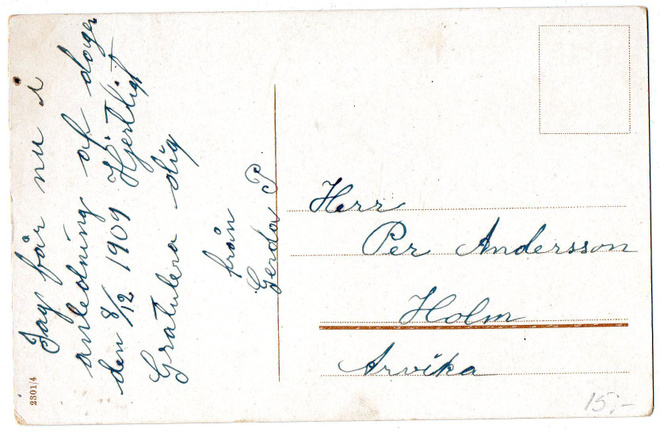 Jag får nu i
anledning af dagen
den 8/12 1909 Hjertligt
Gratulera dig
från
Gerda P.
Herr
Per Andersson
Holm
Arvika
2301/4
15:-